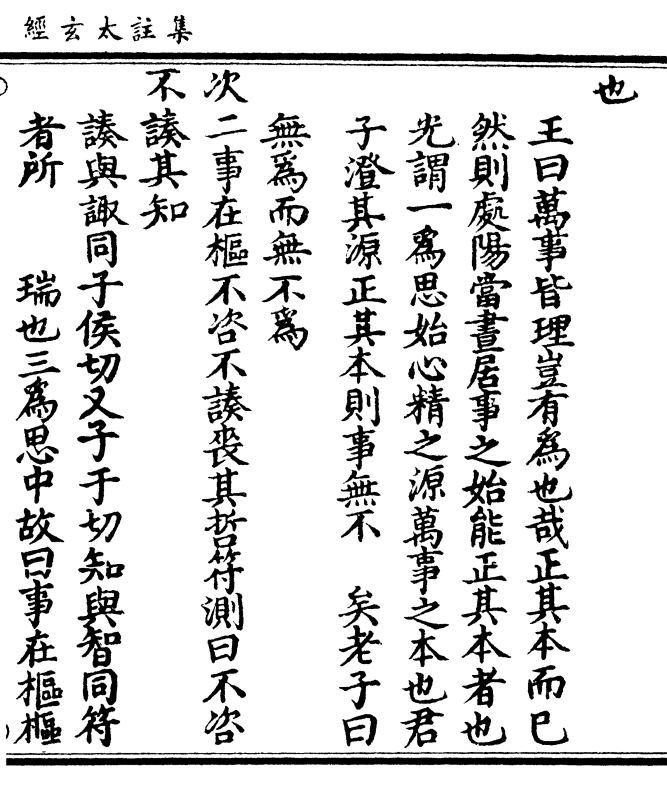 集註太玄經
也
王曰萬事皆理豈有爲也哉正其本而已
然則處陽當晝居事之始能正其本者也
光謂一爲思始心精之源萬事之本也君
子澄其源正其本則事無不 矣老子曰
無爲而無不爲
次二事在樞不咨不諏喪其哲符測曰不咨
不諏其知
諏與諏同子侯切又子于切知與智同符
者所 瑞也三爲思中故曰事在樞樞